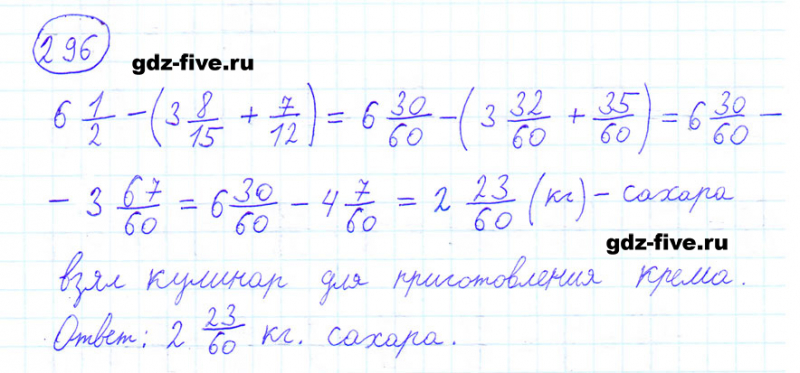 296
gdz-five.ru
6 1/2 - (3 8/15 + 7/12) = 6 30/60 - (3 32/60 + 35/60) = 6 30/60 -
- 3 67/60 = 6 30/60 - 4 7/60 = 2 23/60 (кг) - сахара
gdz-five.ru
взял кулинар для приготовления крема.
Ответ: 2 23/60 кг. сахара.